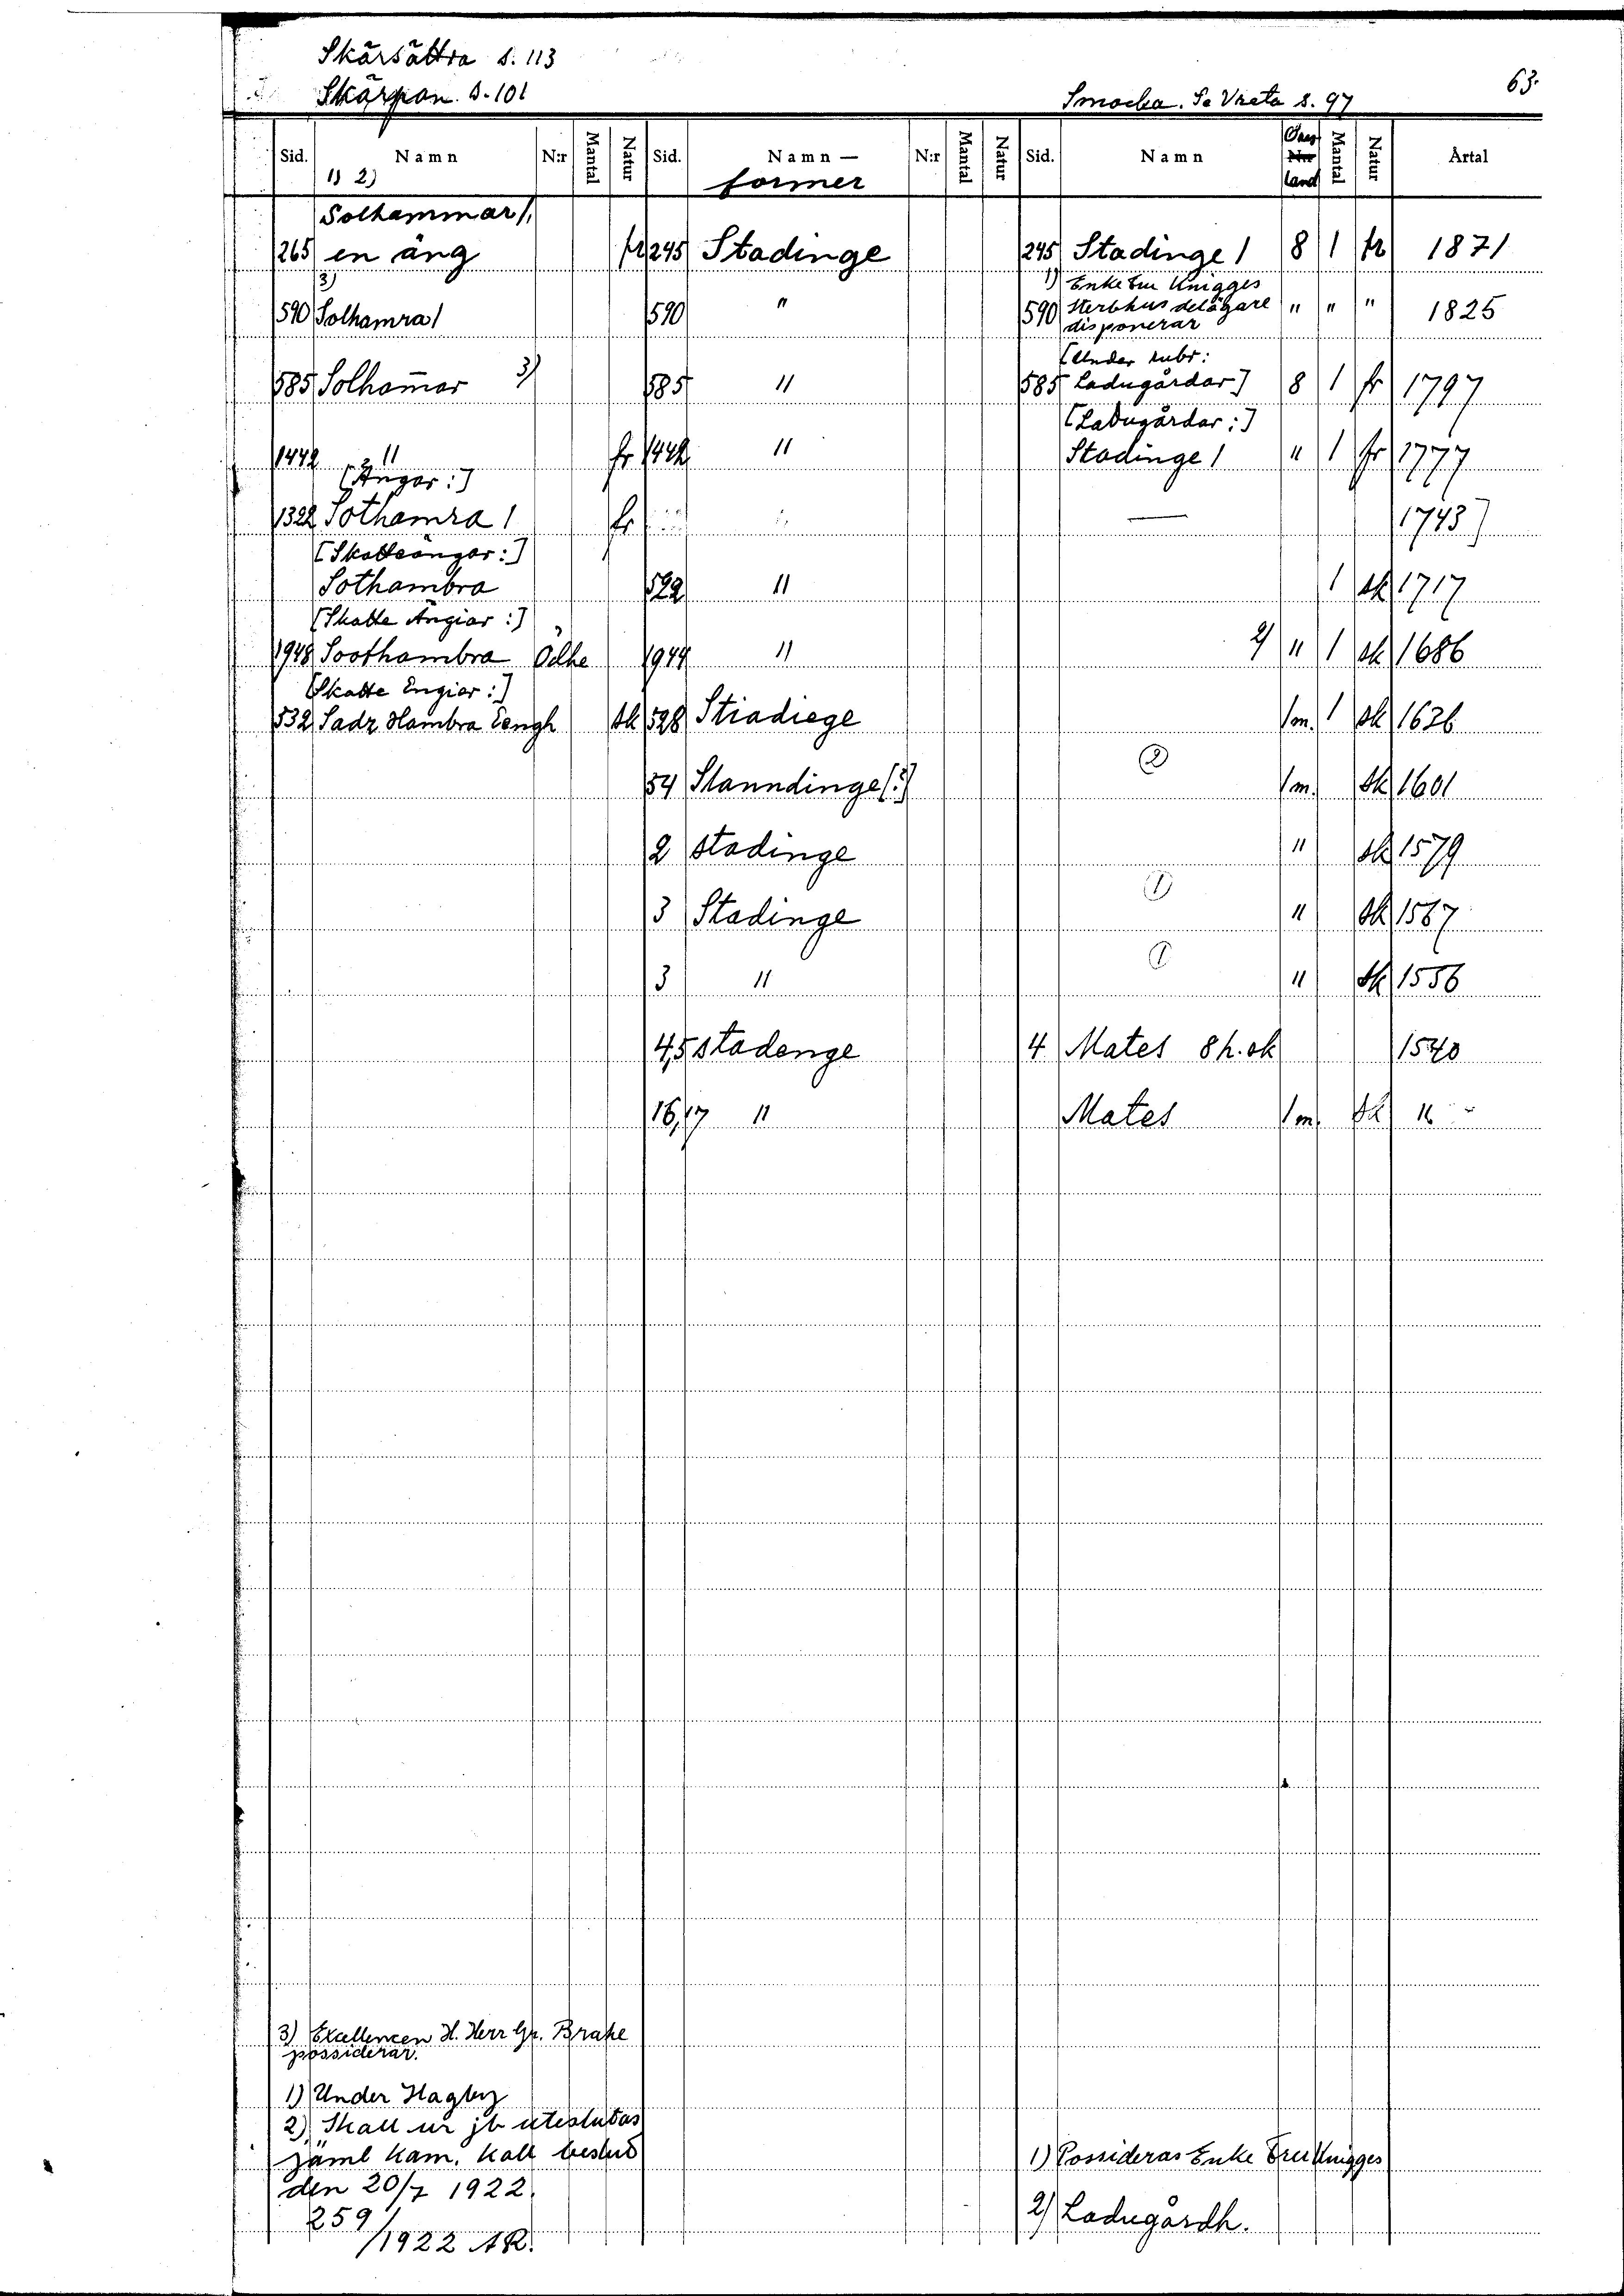 Skärsättra s. 113
Skärpan s. 101
Smocka. Se Vreta s. 97
63.
Sid. Namn N:r Mantal Natur Sid. Namn — N:r Mantal Natur Sid. Namn Öres Mantal Natur Årtal
1) 2) former land
Solhammar 1,
265 en äng fr 245 Stadinge 245 Stadinge 1 8 1 fr 1871
3) 1) Enke Fru Knigges
590 Solhamra 1 590 " 590 Sterbhus delägare " " " 1825
disponerar
[Under rubr:
585 Solham̄ar 3) 585 " 585 Ladugårdar] 8 1 fr 1797
[Ladugårdar:]
1442 " fr 1442 " Stadinge 1 " 1 fr 1777
[Ängar:]
1322 Sothamra 1 fr — 1743]
[Skatteängar:]
Sothambra 522 " 1 sk 1717
[Skatte Ängiar:]
1948 Soothambra Ödhe 1944 " 2) " 1 sk 1686
[Skatte Engiar:]
532 Sadz Hambra Eengh sk 528 Stiadiege 1 m. 1 sk 1626
54 Stanndinge [?] (2) 1 m. sk 1601
2 stadinge " sk 1579
3 Stadinge (1) " sk 1567
3 " (1) " sk 1556
4,5 stadenge 4 Mates 8 h. sk 1540
16,17 " Mates 1 m. sk "
3) Excellencen H. Herr Gr. Brahe
possiderar.
1) Under Hagby
2) Skall ur jb uteslutas
jäml Kam. Koll beslut
den 20/7 1922.
259/1922 AR.
1) Possideras Enke Fru Knigges
2) Ladugårdh.